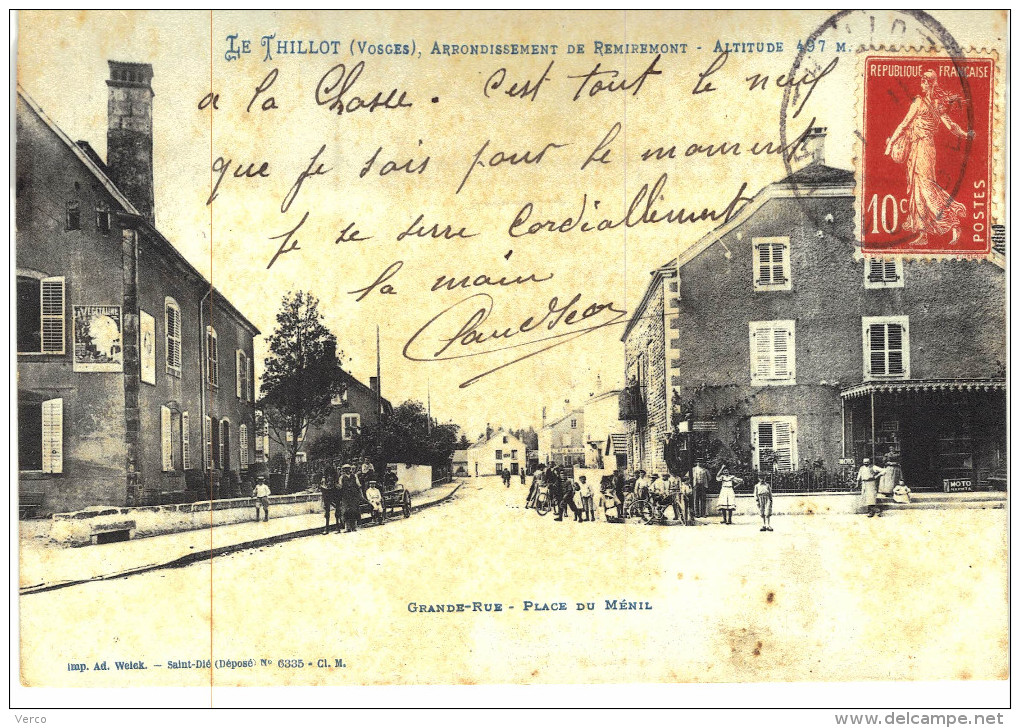 LE THILLOT (VOSGES), ARRONDISSEMENT DE REMIREMONT - ALTITUDE 497 M.
REPUBLIQUE FRANÇAISE
10c
POSTES
à la Chasse. c'est tout le neuf
que je sais pour le moment
je te serre Cordiallement
la main
VEGETALINE
MOTO
GRANDE-RUE - PLACE DU MÉNIL
Imp. Ad. Weick. - Saint-Dié (Déposé) No 6335 - Cl. M.
Verco
www.delcampe.net